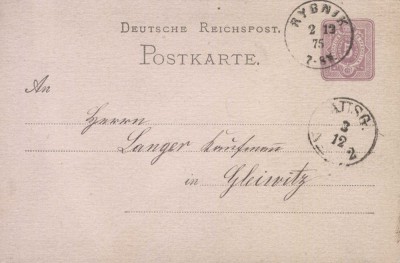 DEUTSCHE REICHSPOST.
POSTKARTE.
RYBNIK
2 12
75
7-8N
An
Herrn
Langer Kaufmann
in Gleiwitz
AUSG.
3
12
2